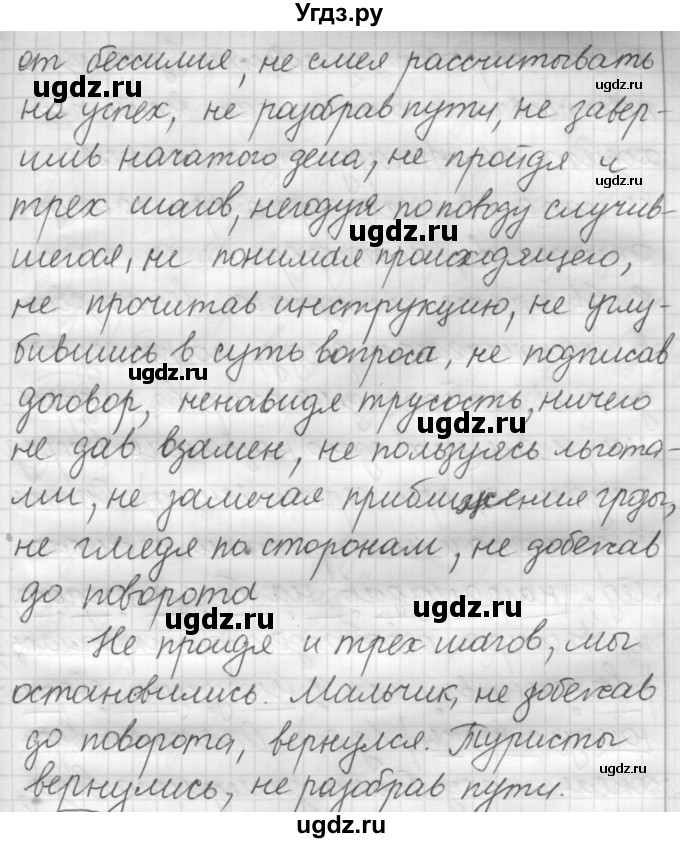 Угдз.ру
от бессилия, не смея рассчитывать
ugdz.ru ugdz.ru
на успех, не разобрав пути, не завер-
шив начатого дела, не пройдя и
ugdz.ru
трех шагов, негодуя по поводу случив-
ugdz.ru
шегося, не понимая происходящего,
не прочитав инструкцию, не углу-
бившись в суть вопроса, не подписав
ugdz.ru
договор, ненавидя трусость, ничего
ugdz.ru
не дав взамен, не пользуясь льгота-
ми, не замечая приближения грозы,
не глядя по сторонам, не добежав
до поворота
ugdz.ru ugdz.ru
Не пройдя и трех шагов, мы
остановились. Мальчик, не добежав
до поворота, вернулся. Туристы
ugdz.ru
вернулись, не разобрав пути.
ugdz.ru